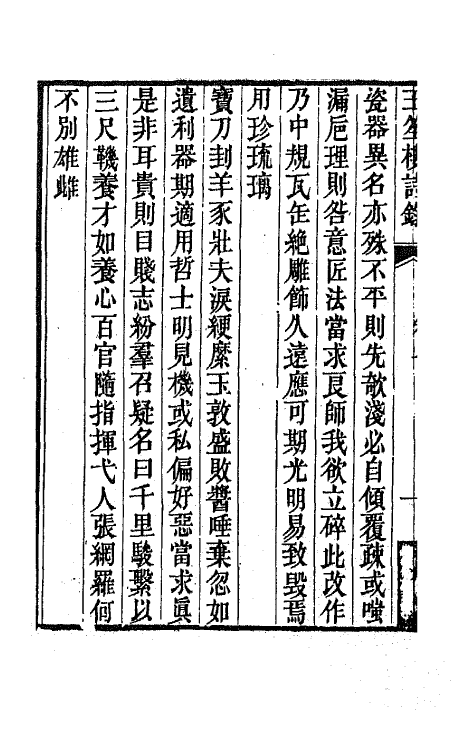 玉笙樓詩錄
瓷器異名亦殊不平則先欹淺必自傾覆疎或嗤
漏巵理則咎意匠法當求良師我欲立碎此改作
乃中規瓦缶絶雕飾久遠應可期光明易致毀焉
用珍琉璃
寶刀刲羊豕壯夫淚綆縻玉敦盛敗醬唾棄忽如
遺利器期適用哲士明見機或私偏好惡當求眞
是非耳貴則目賤志紛羣召疑名曰千里駿繫以
三尺鞿養才如養心百官隨指揮弋人張網羅何
不別雄雌